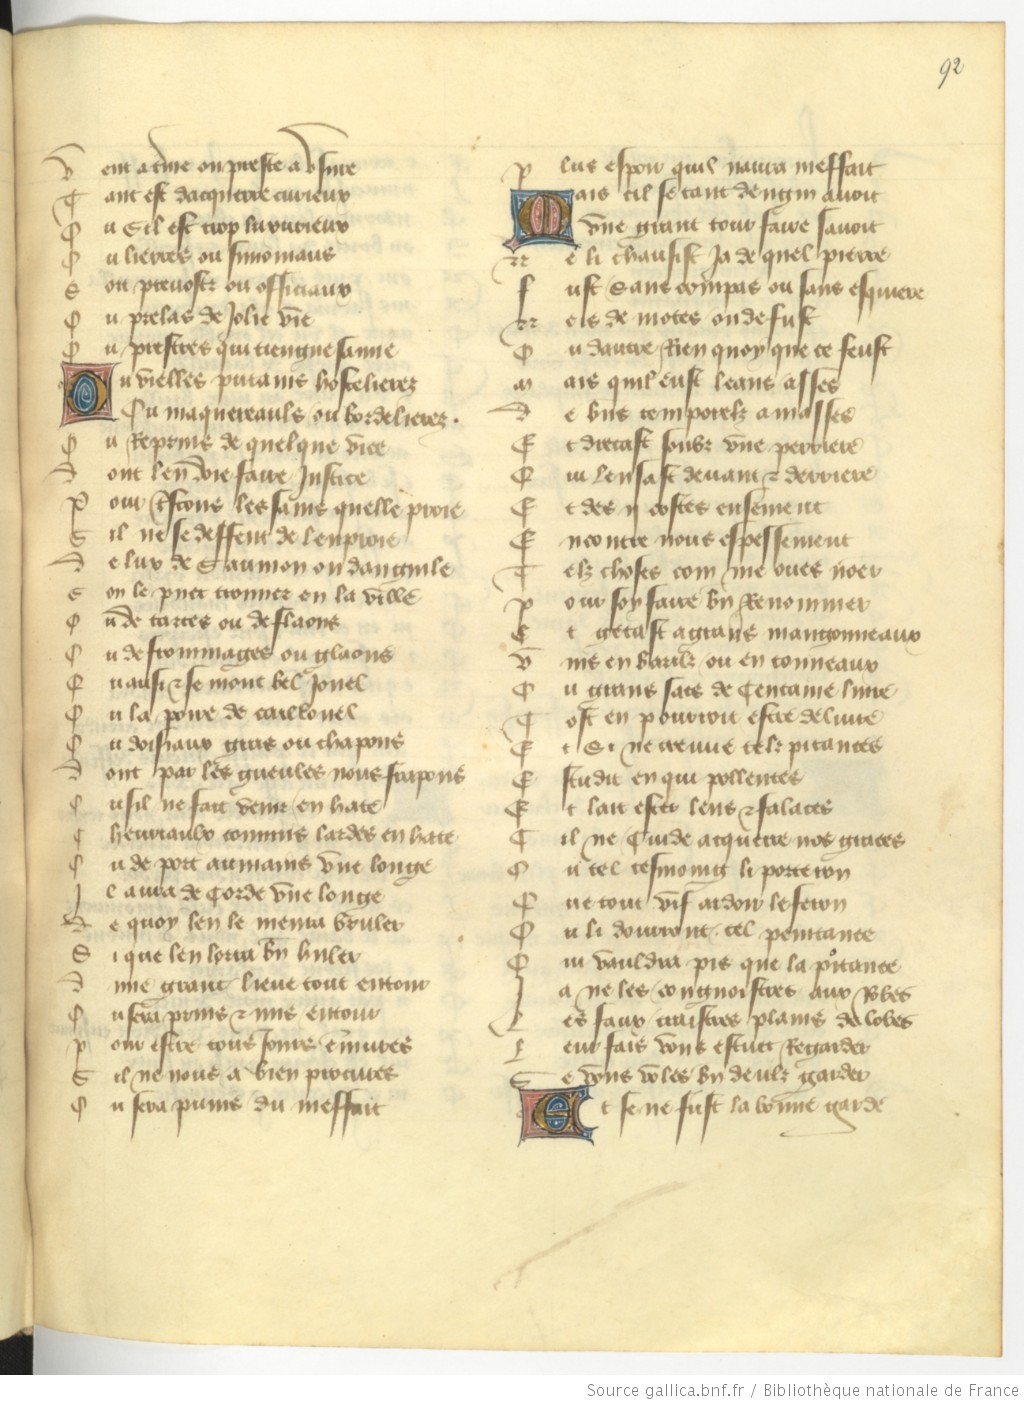 92
Vent a t'me ou preste a usure
Tant est dacquerre curieux
Ou Sil est trop luxurieux
Ou lierres ou simoniaus
Soit prevost ou officiaux
Ou prelas de Jolie vie
Ou prestres qui tiengne samie
Ou vielles putains hostelieres
Ou maquereaulx ou bordelieres
Ou Reprins de quelque vice
Dont len doie faire Justice
Par tous les sains quelle proie
Sil ne se deffent de lenproie
De lux de Saumon ou danguile
Son le puet trouver en la ville
Ou de tartes ou de flaons
Ou de frommages ou glaons
Quausi est se mont bel Jouel
Ou la poire de caillouel
Ou doisiaux gras ou chapons
Dont par les gueules nous frapons
Ou sil ne fait venir en haste
Chevriaulx connins lardes en haste
Ou de porc aumains une longe
Il aura de Corde une longe
De quoy len le menra bruler
Si que len lorra bien huler
Dune grant lieue tout entour
Ou sera prins et mis en tour
Pour estre tous Jours enmures
Sil ne nous a bien procures
Ou sera punis du meffait
Plus espoir quil naura meffait
Mais cil se tant dengin avoit
Une grant tour faire savoit
Ne li chausist Ja de quel pierre
Fust Sans compas ou sans esquierre
Neis de motes ou de fust
Ou dautre Rien quoy que ce feust
Mais quil eust leans asses
De biens temporelz amasses
Et drecast sousz une perriere
Qui lensast devant et derriere
Et des ii costes ensement
Encontre nous espessement
Telz choses com me oues noer
Pour soy faire bien Renommer
Et getast a grans mangonneaux
Vins en barilz ou en tonneaux
Ou grans sacs de Centaine livre
Tost en pourroit estre delivre
Et Si ne treuve telz pitances
Estudit en quipollences
Et lait ester lens et falaces
Sil ne Cuide acquerre nos graces
Ou tel tesmoing li porteron
Que tout vif ardoir le feron
Ou li donrront tel penitance
Qui vauldra pis que la pitance
Ja ne les congnoistres aux Robes
Les faux traistres plains de lobes
Leur fais vous estuet Regarder
Se vous voles bien deulz garder
Et se ne fust la bonne garde
Source gallica.bnf.fr / Bibliothèque nationale de France